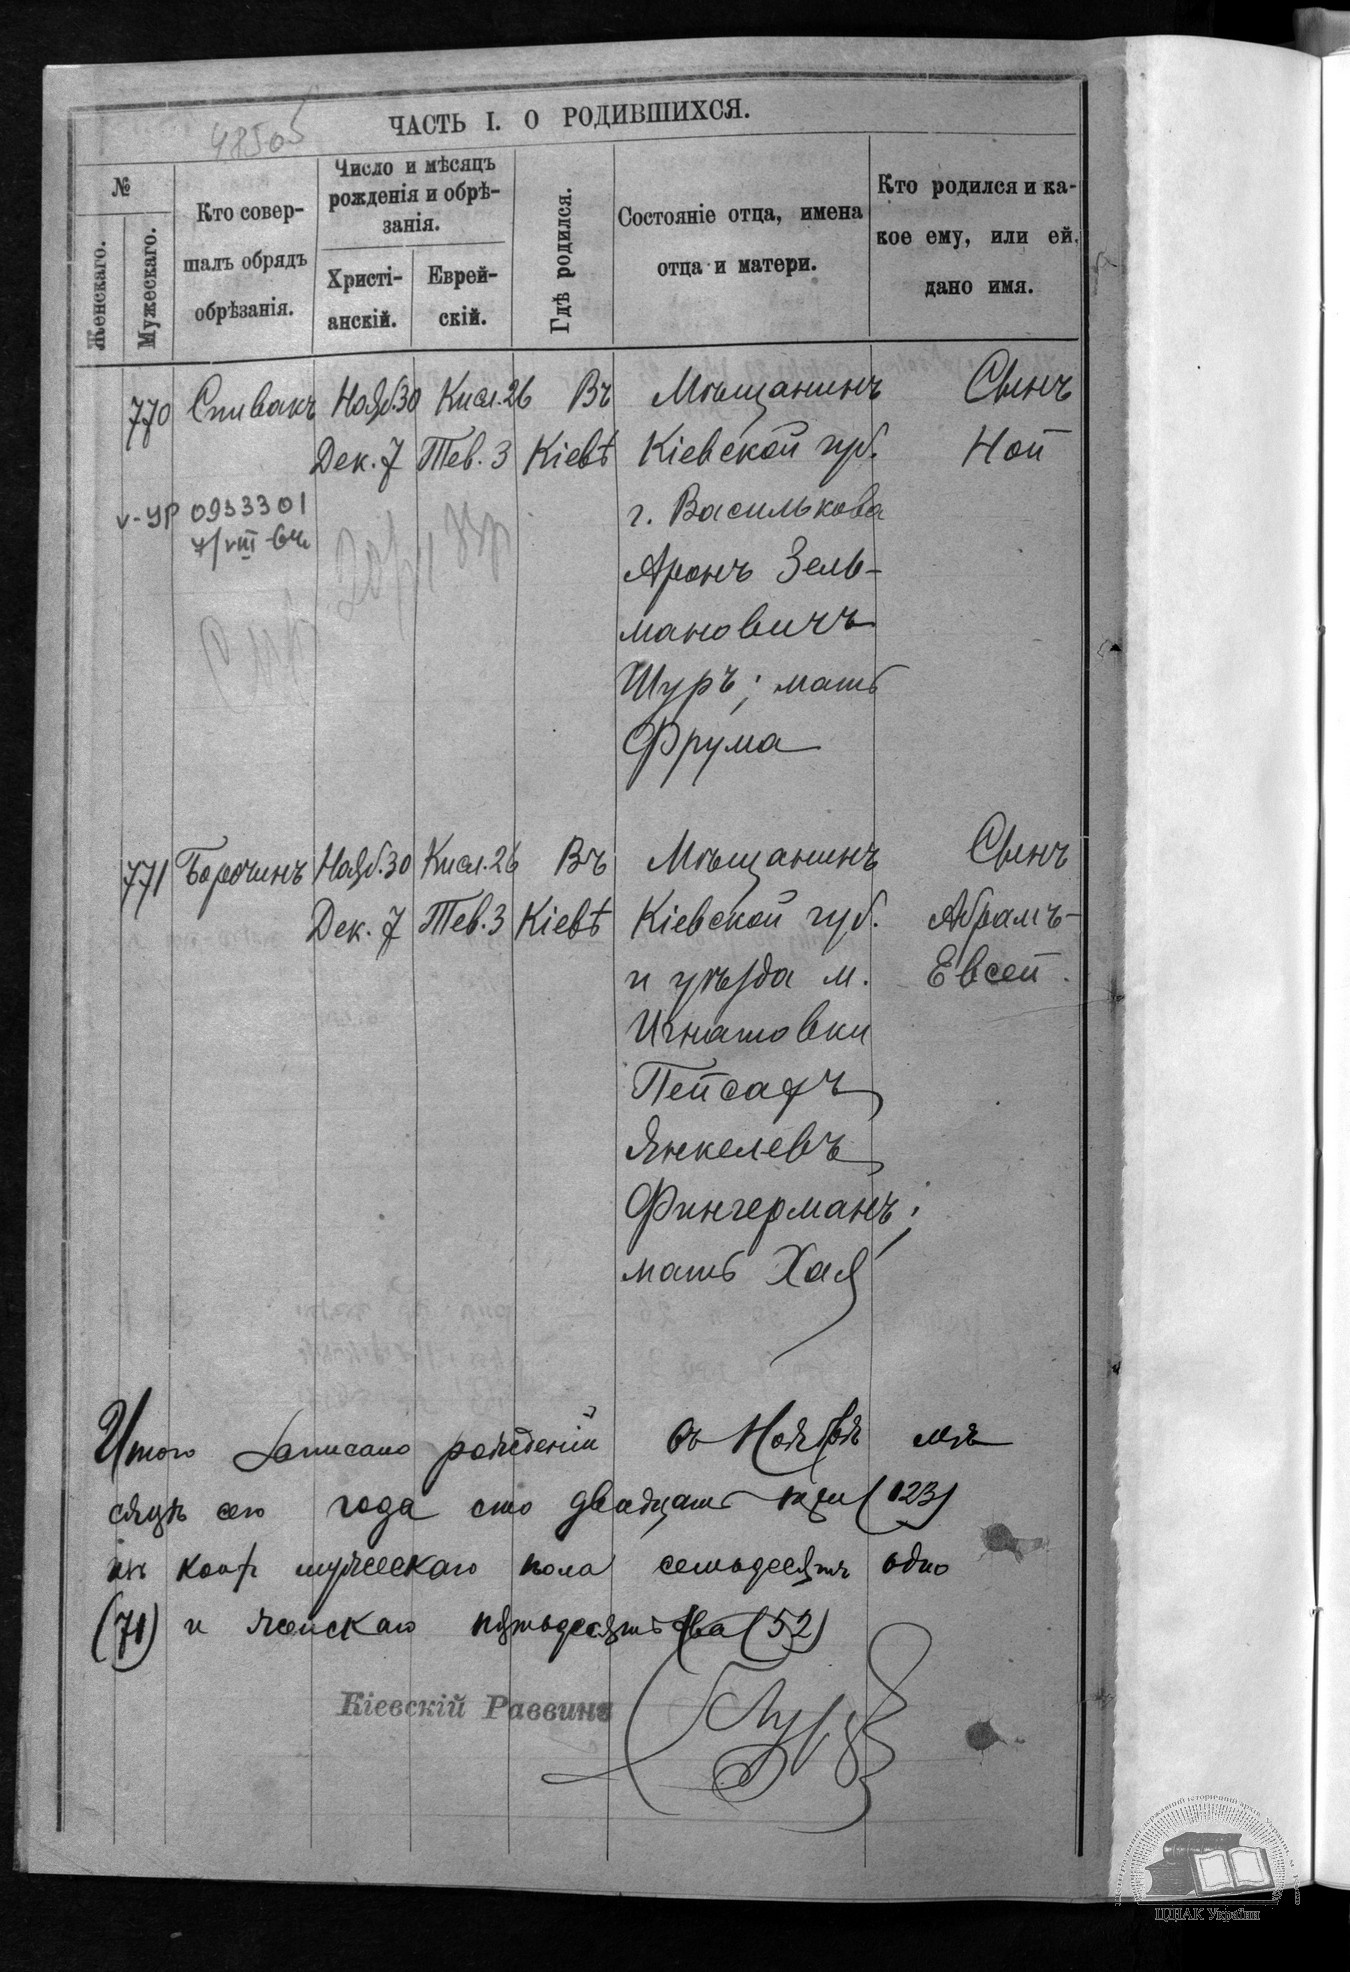 48505
ЧАСТЬ I. О РОДИВШИХСЯ.
№
Женскаго.
Мужескаго.
Кто совер-
шалъ обрядъ
обрѣзанія.
Число и мѣсяцъ
рожденія и обрѣ-
занія.
Христі-
анскій.
Еврей-
скій.
Гдѣ родился.
Состояніе отца, имена
отца и матери.
Кто родился и ка-
кое ему, или ей,
дано имя.
770 Спивакъ Нояб.30 Кисл.26 Въ Мѣщанинъ Сынъ
Дек. 7 Тев. 3 Кіевѣ Кіевской губ. Ной
v-УР 0933301
7/VIII-64
г. Василькова
Аронъ Зель-
мановичъ
Шуръ; мать
Фрума
771 Борочинъ Нояб.30 Кисл.26 Въ Мѣщанинъ Сынъ
Дек. 7 Тев.3 Кіевѣ Кіевской губ. Абрамъ-
и уѣзда м. Евсей.
Игнатовки
Пейсахъ
Янкелевъ
Фингерманъ;
мать Хая
Итого записано рожденій въ Ноябрѣ мѣ-
сяцѣ сего года сто двадцать три (123)
изъ коихъ мужескаго пола семьдесятъ одно
(71) и женскаго пятьдесятъ два (52)
Кіевскій Раввинъ
ЦДІАК України